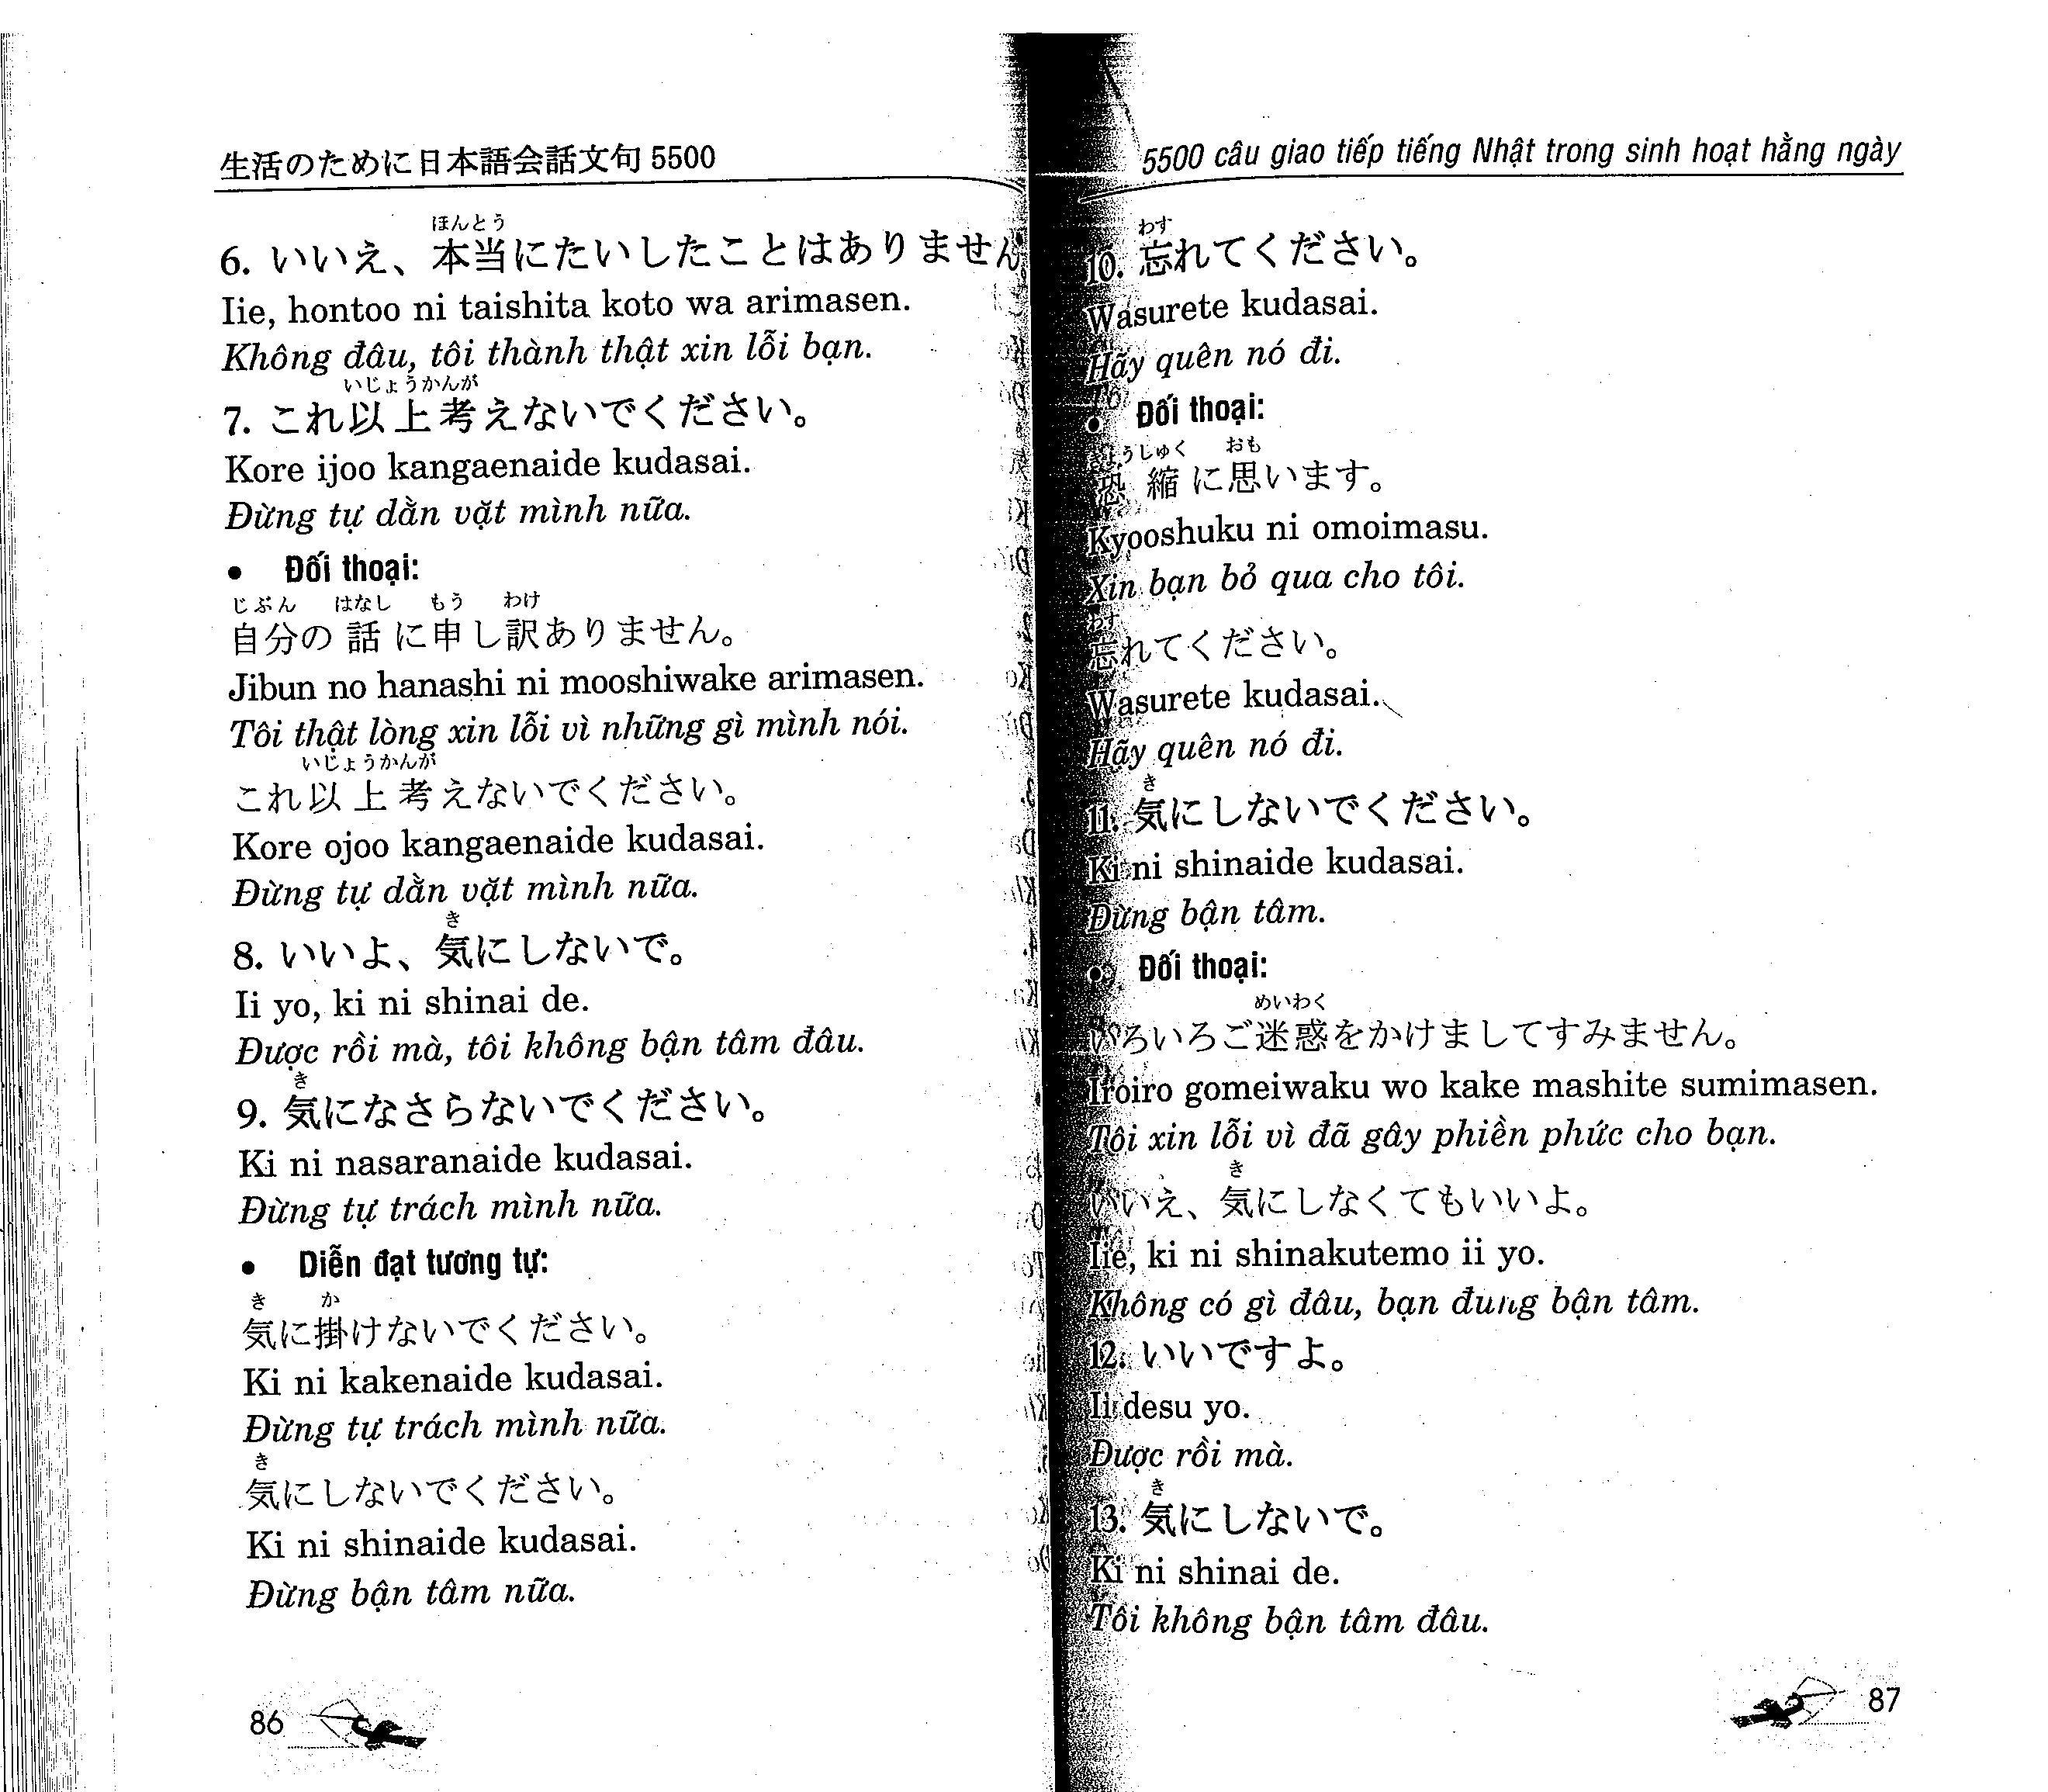 生活のために日本語会話文句 5500
ほんとう
6. いいえ、本当にたいしたことはありません。
Iie, hontoo ni taishita koto wa arimasen.
Không đâu, tôi thành thật xin lỗi bạn.
いじょうかんが
7. これ以上考えないでください。
Kore ijoo kangaenaide kudasai.
Đừng tự dằn vặt mình nữa.
• Đối thoại:
じぶん はなし もう わけ
自分の話に申し訳ありません。
Jibun no hanashi ni mooshiwake arimasen.
Tôi thật lòng xin lỗi vì những gì mình nói.
いじょうかんが
これ以上考えないでください。
Kore ojoo kangaenaide kudasai.
Đừng tự dằn vặt mình nữa.
き
8. いいよ、気にしないで。
Ii yo, ki ni shinai de.
Được rồi mà, tôi không bận tâm đâu.
き
9. 気になさらないでください。
Ki ni nasaranaide kudasai.
Đừng tự trách mình nữa.
• Diễn đạt tương tự:
き か
気に掛けないでください。
Ki ni kakenaide kudasai.
Đừng tự trách mình nữa.
き
気にしないでください。
Ki ni shinaide kudasai.
Đừng bận tâm nữa.
86
5500 câu giao tiếp tiếng Nhật trong sinh hoạt hằng ngày
わす
10. 忘れてください。
Wasurete kudasai.
Hãy quên nó đi.
• Đối thoại:
きょうしゅく おも
恐縮に思います。
Kyooshuku ni omoimasu.
Xin bạn bỏ qua cho tôi.
わす
忘れてください。
Wasurete kudasai.
Hãy quên nó đi.
き
11. 気にしないでください。
Ki ni shinaide kudasai.
Đừng bận tâm.
• Đối thoại:
めいわく
いろいろご迷惑をかけましてすみません。
Iroiro gomeiwaku wo kake mashite sumimasen.
Tôi xin lỗi vì đã gây phiền phức cho bạn.
き
いいえ、気にしなくてもいいよ。
Iie, ki ni shinakutemo ii yo.
Không có gì đâu, bạn đừng bận tâm.
12. いいですよ。
Ii desu yo.
Được rồi mà.
き
13. 気にしないで。
Ki ni shinai de.
Tôi không bận tâm đâu.
87